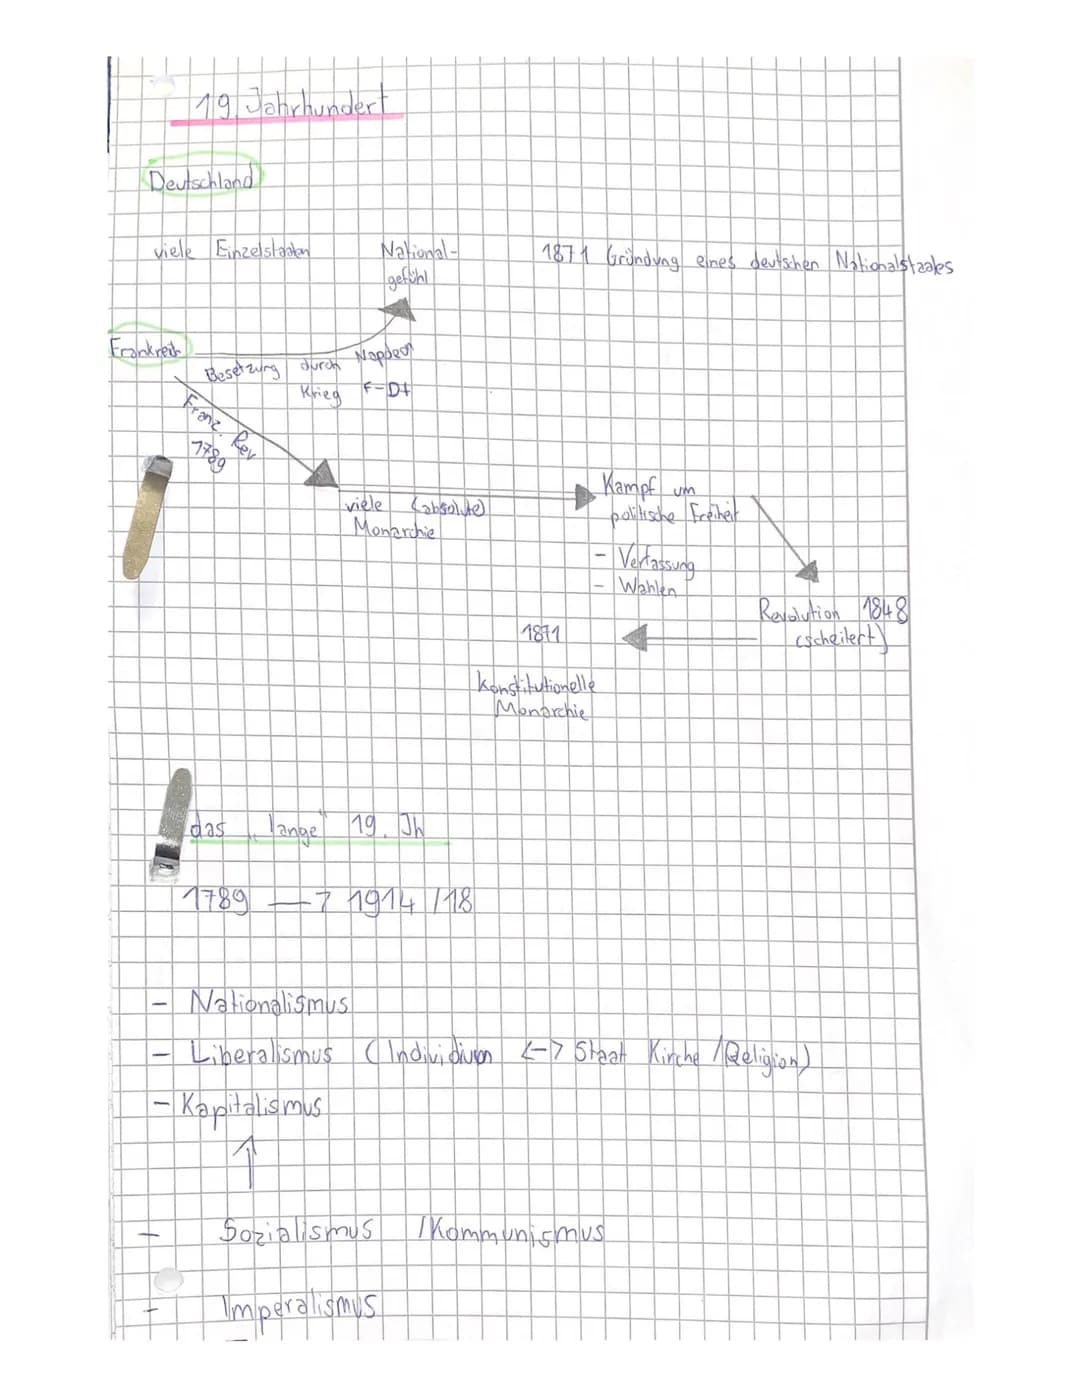 19. Jahrhundert
Deutschland
viele Einzelstaaten
National-
gefühl
1871 Gründung eines deutschen Nationalstaates
Frankreich
Besetzung durch Napoleon
Krieg F-Dt
Franz. Rev
1789
viele (absolute)
Monarchie
Kampf um
politische Freiheit
- Verfassung
- Wahlen
Revolution 1848
(scheitert)
1871
Konstitutionelle
Monarchie
das „lange" 19. Jh
1789 → 1914/18
- Nationalismus
- Liberalismus (Individium <-> Staat Kirche /Religion)
- Kapitalismus
- Sozialismus /Kommunismus
- Imperalismus